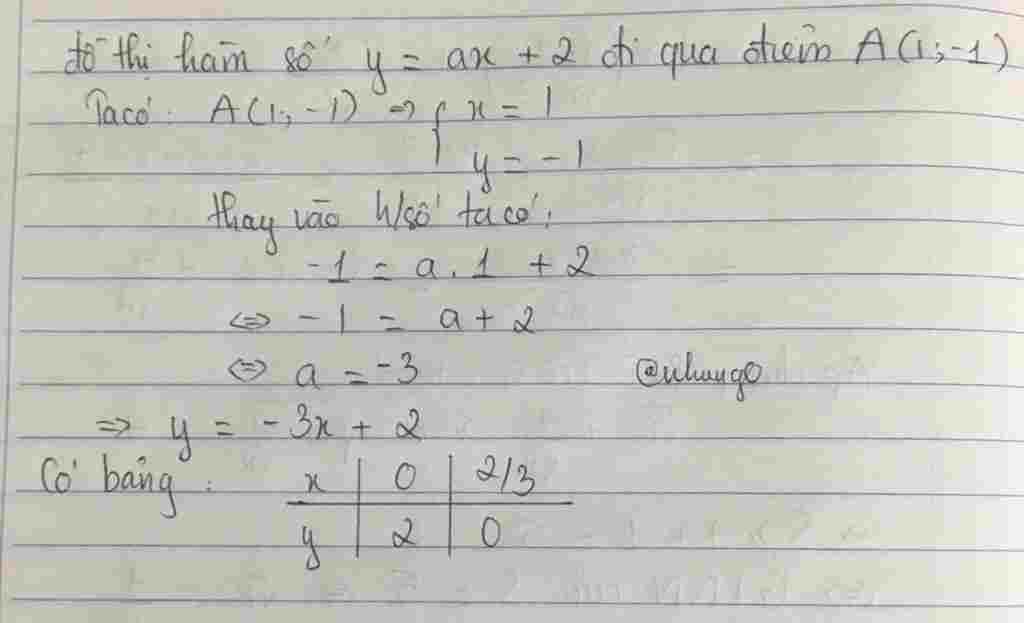 đồ thị hàm số y = ax + 2 đi qua điểm A(1;-1)
Ta có: A(1;-1) => { x = 1
y = -1
thay vào h/số ta có:
-1 = a.1 + 2
<=> -1 = a + 2
<=> a = -3 @nhung0
=> y = -3x + 2
Có bảng: x | 0 | 2/3
y | 2 | 0